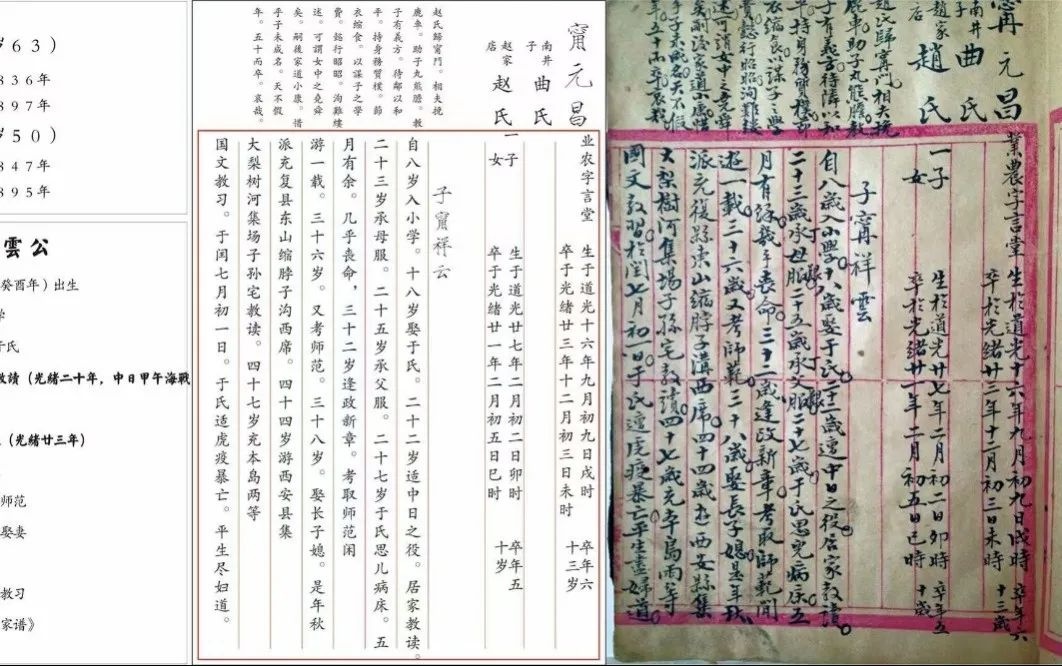 岁63)
836年
897年
岁50)
847年
895年
雲公
癸酉年)出生
学
于氏
教請(光緒二十年,中日甲午海戰
(光緒廿三年)
师范
娶妻
教习
家谱》
甯元昌
南井子 曲氏
赵家店 赵氏
赵氏歸甯門。相夫挽
鹿車。助子丸熊膽。教
子有義方。待鄰以和
平。持身務質樸。節
衣缩食。以謀子之學
費。懿行昭昭。洵難縷
述。可謂女中之堯舜
矣。嗣後家道小康。措
乎子未成名。天不假
年。五十而卒。哀哉。
业农字言堂
生于道光十六年九月初九日戌时 卒年六
卒于光绪廿三年十二月初三日未时 十三岁
一子
生于道光廿七年二月初二日卯时 卒年五
女
卒于光绪廿一年二月初五日巳时 十岁
子甯祥云
自八岁入小学。十八岁娶于氏。二十二岁适中日之役。居家教读。
二十三岁承母服。二十五岁承父服。二十七岁于氏思儿病床。五
月有余。几乎丧命,三十二岁逢政新章。考取师范闲
游一载。三十六岁。又考师范。三十八岁。娶长子媳。是年秋
派充复县东山缩脖子沟西席。四十四岁游西安县集
大梨树河集场子孙宅教读。四十七岁充本岛两等
国文教习。于闰七月初一日。于氏适虎疫暴亡。平生尽妇道。
甯元昌
南井子 曲氏
趙家店 趙氏
趙氏歸甯門相夫挽
鹿車助子丸熊膽教
子有義方待隣以和
平持身務質樸節
衣縮食以謀子之學
費懿行昭昭洵難縷
述可謂女中之堯舜
矣嗣後家道小康惜
乎子未成名天不假
年五十而卒哀哉
業農字言堂
生於道光十六年九月初九日戌時 卒年六
卒於光緒廿三年十二月初三日未時 十三歲
一子
生於道光廿七年二月初二日卯時 卒年五
女
卒於光緒廿一年二月初五日巳時 十歲
子甯祥雲
自八歲入小學十八歲娶于氏二十二歲遭中日之役居家教讀
二十三歲承母服二十五歲承父服二十七歲于氏思兒病床五
月有餘幾乎喪命三十二歲逢政新章考取師範閒
遊一載三十六歲又考師範三十八歲娶長子媳是年秋
派充復縣東山縮脖子溝西席四十四歲遊西安縣集
大梨樹河集場子孫宅教讀四十七歲充本島兩等
國文教習於閏七月初一日于氏遭虎疫暴亡平生盡婦道